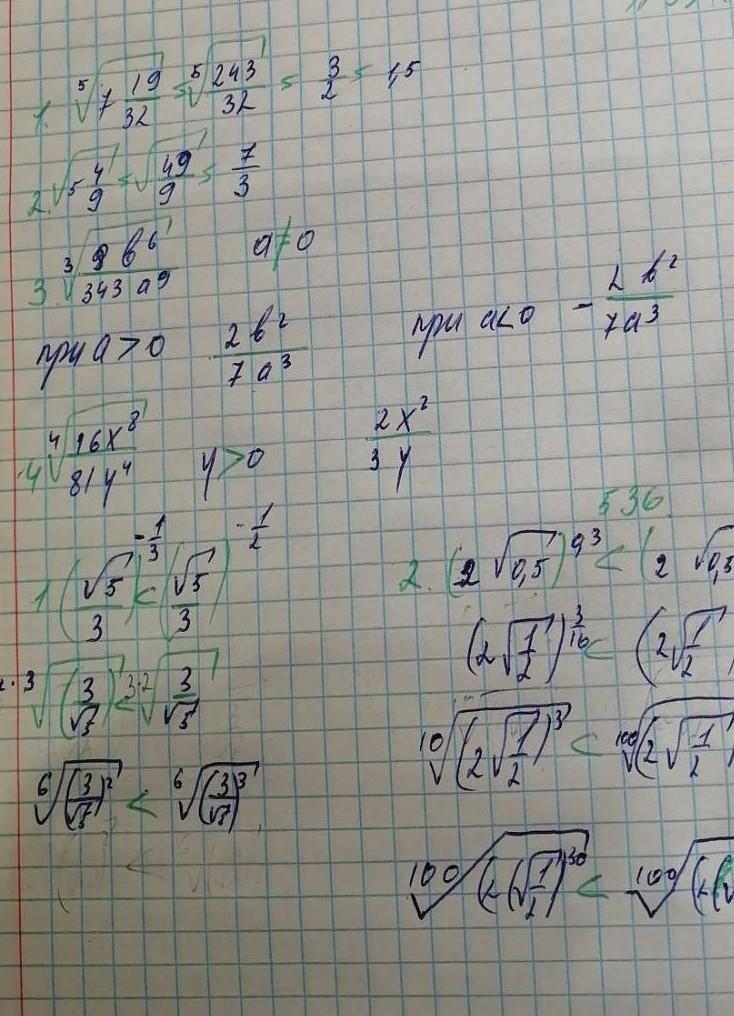 1. ⁵√(7 19/32) = ⁵√(243/32) = 3/2 = 1,5
2. √(5 4/9) = √(49/9) = 7/3
3. ³√(8b⁶/343a⁹) a≠0
при a>0 2b²/7a³ при a<0 - 2b²/7a³
4 ⁴√(16x⁸/81y⁴) y>0 2x²/3y
536
1 (√5/3)^(-1/3) < (√5/3)^(-1/2)
2. (2√0,5)^(0,3) < (2√0,5
(2√(1/2))^(3/10) < (2√(1/2)
¹⁰√((2√(1/2))³) < ¹⁰⁰√((2√(1/2)
⁶√((3/√5)²) < ⁶√((3/√5)³)
¹⁰⁰√((2(√(1/2))³⁰) < ¹⁰⁰√((2(√